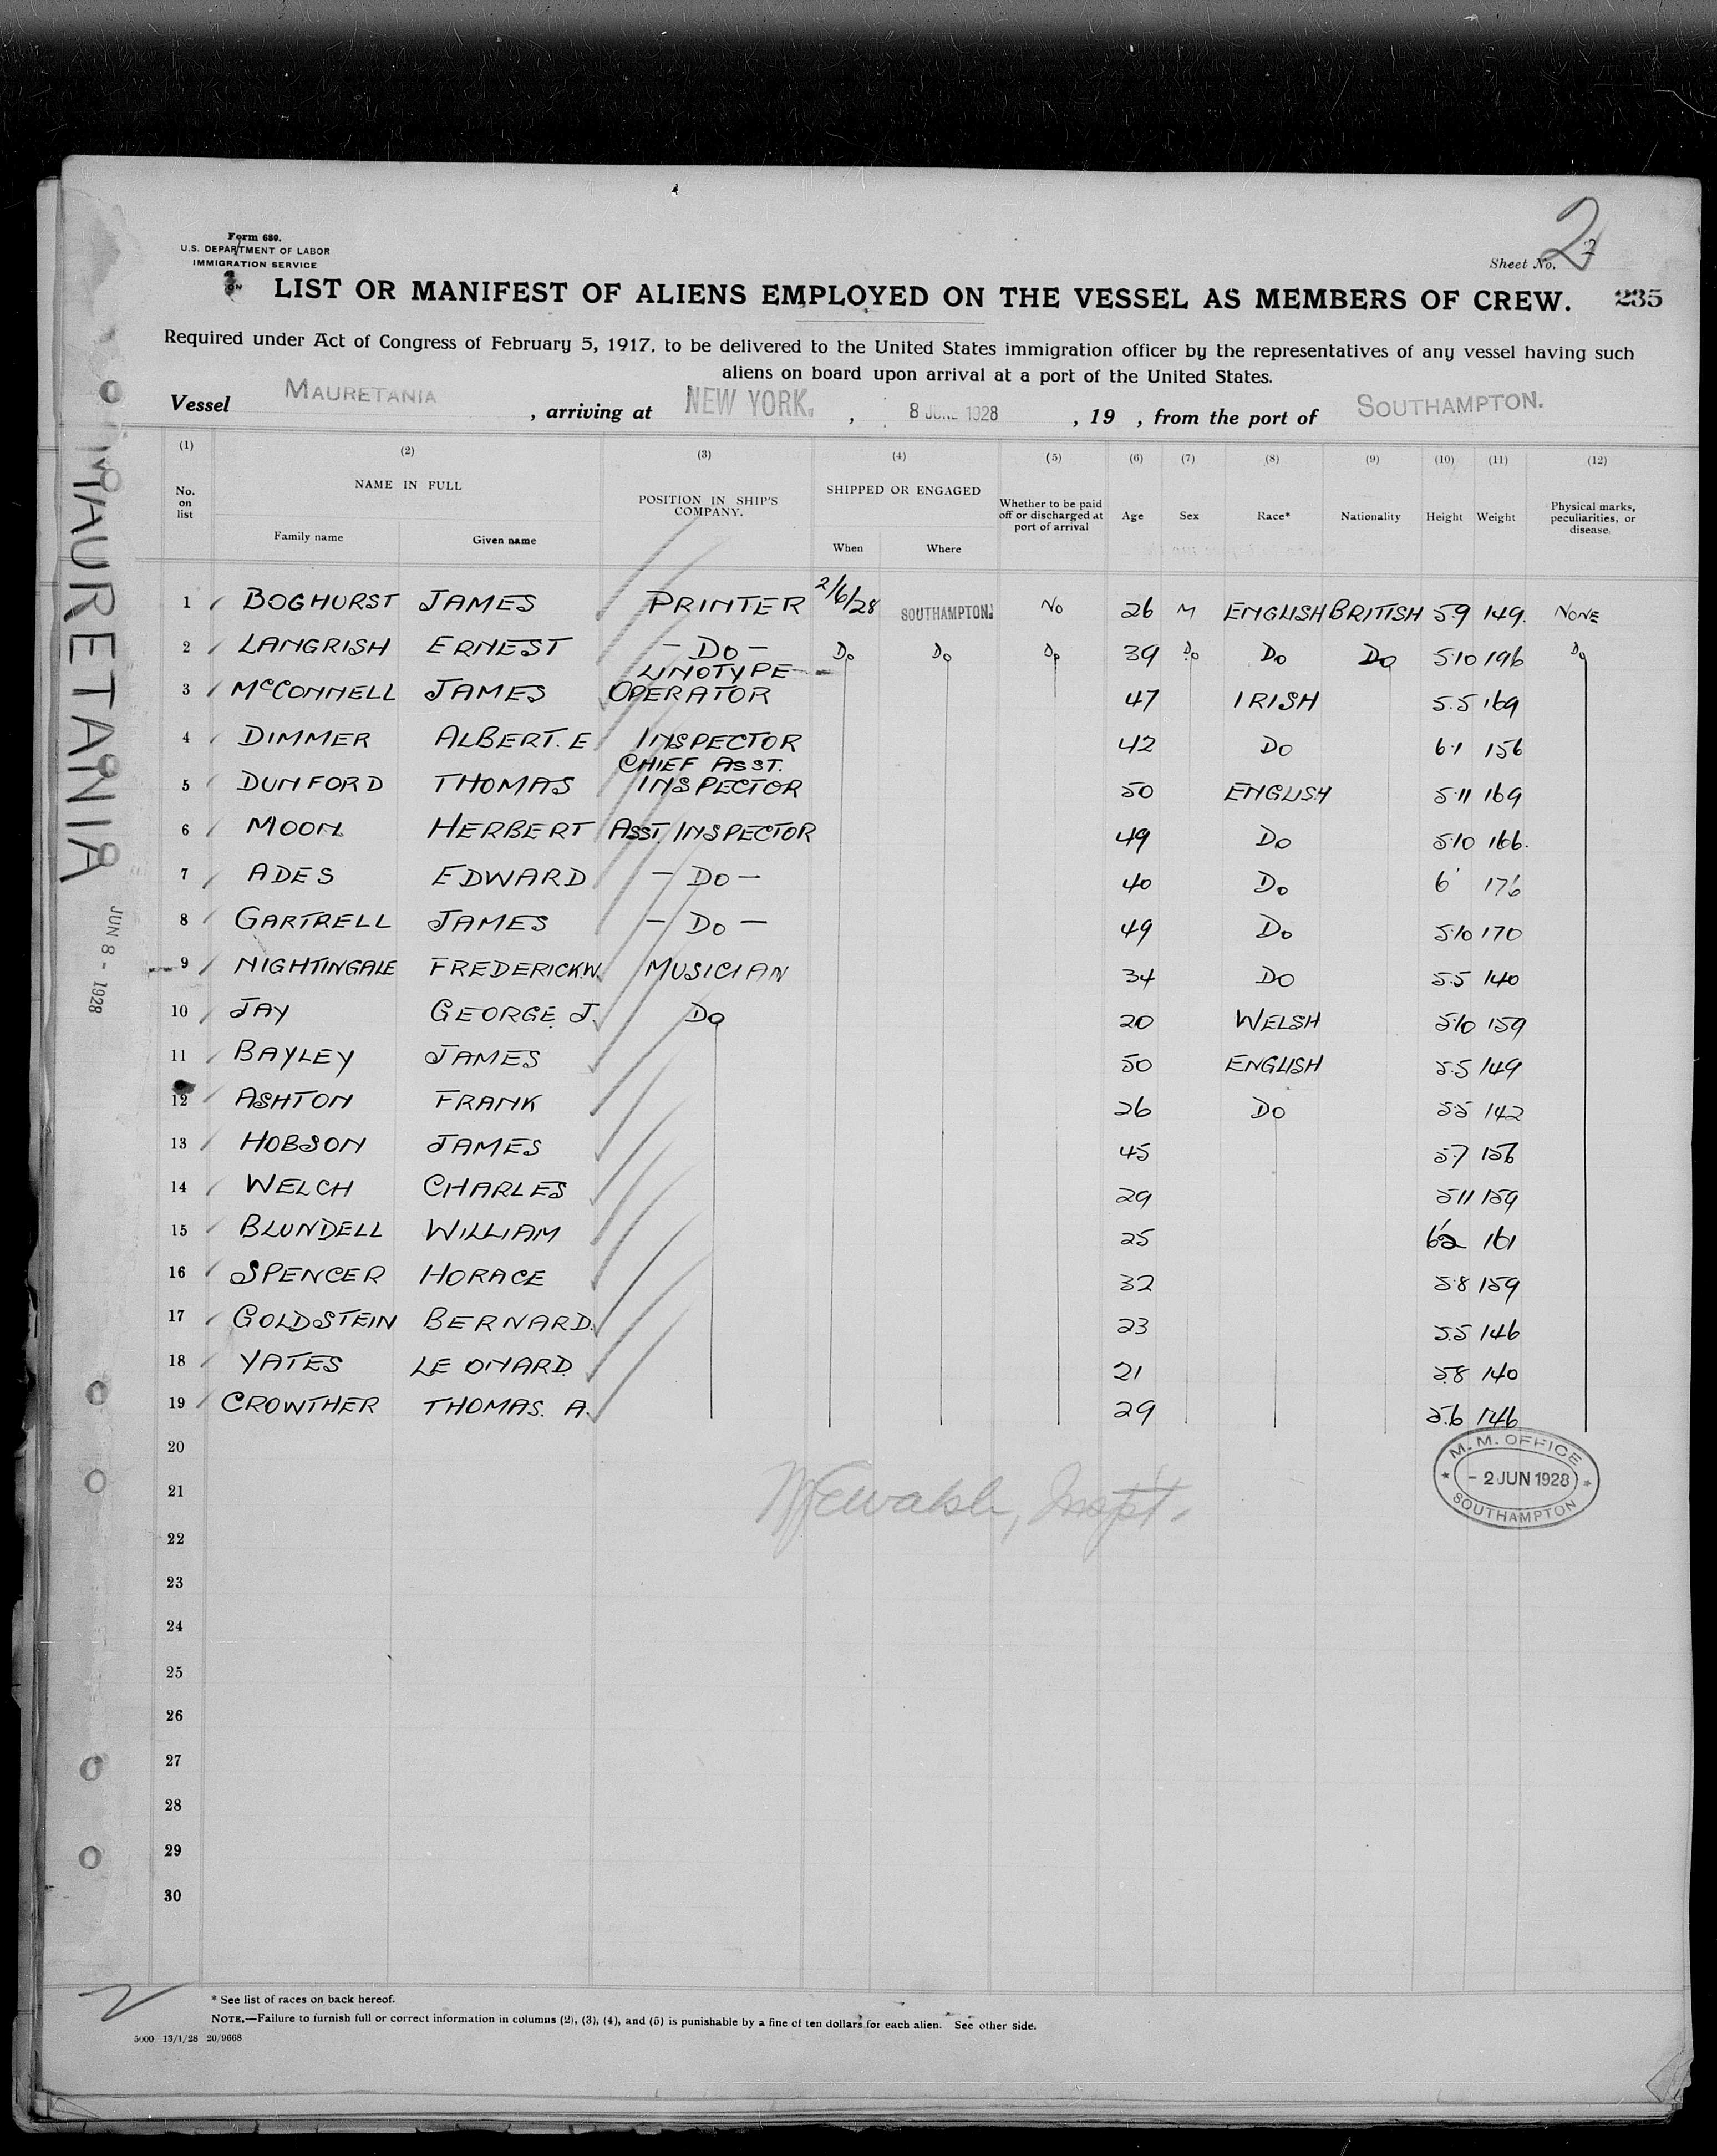 2
Form 680.
U.S. DEPARTMENT OF LABOR
IMMIGRATION SERVICE
Sheet No. 2
LIST OR MANIFEST OF ALIENS EMPLOYED ON THE VESSEL AS MEMBERS OF CREW. 235
Required under Act of Congress of February 5, 1917, to be delivered to the United States immigration officer by the representatives of any vessel having such
aliens on board upon arrival at a port of the United States.
Vessel MAURETANIA, arriving at NEW YORK, 8 JUNE 1928, 19 , from the port of SOUTHAMPTON.
(1) (2) (3) (4) (5) (6) (7) (8) (9) (10) (11) (12)
No. on list NAME IN FULL POSITION IN SHIP'S COMPANY. SHIPPED OR ENGAGED Whether to be paid off or discharged at port of arrival Age Sex Race* Nationality Height Weight Physical marks, peculiarities, or disease.
Family name Given name When Where
1 BOGHURST JAMES PRINTER 2/6/28 SOUTHAMPTON. NO 26 M ENGLISH BRITISH 5.9 149. NONE
2 LANGRISH ERNEST - DO - DO DO DO 39 DO DO DO 5.10 196 DO
3 McCONNELL JAMES LINOTYPE OPERATOR 47 IRISH 5.5 169
4 DIMMER ALBERT. E INSPECTOR 42 DO 6.1 156
5 DUNFORD THOMAS CHIEF ASST. INSPECTOR 50 ENGLISH 5.11 169
6 MOON HERBERT ASST. INSPECTOR 49 DO 5.10 166.
7 ADES EDWARD - DO - 40 DO 6' 176
8 GARTRELL JAMES - DO - 49 DO 5.10 170
9 NIGHTINGALE FREDERICK.W. MUSICIAN 34 DO 5.5 140
10 JAY GEORGE J. DO 20 WELSH 5.10 159
11 BAYLEY JAMES 50 ENGLISH 5.5 149
12 ASHTON FRANK 26 DO 5.5 142
13 HOBSON JAMES 45 5.7 156
14 WELCH CHARLES 29 5.11 159
15 BLUNDELL WILLIAM 25 6'2 161
16 SPENCER HORACE 32 5.8 159
17 GOLDSTEIN BERNARD. 23 5.5 146
18 YATES LEONARD. 21 5.8 140
19 CROWTHER THOMAS. A. 29 5.6 146
20
21
22
23
24
25
26
27
28
29
30
M. M. OFFICE
- 2 JUN 1928
SOUTHAMPTON
Walsh, Inspt.
MAURETANIA
JUN 8 - 1928
2
* See list of races on back hereof.
NOTE.—Failure to furnish full or correct information in columns (2), (3), (4), and (5) is punishable by a fine of ten dollars for each alien. See other side.
5000 13/1/28 20/9668